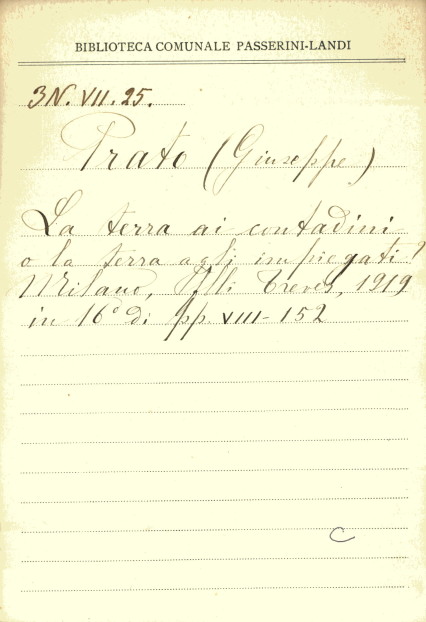 BIBLIOTECA COMUNALE PASSERINI-LANDI
3N. VII. 25.
Prato (Giuseppe)
La terra ai contadini
o la terra agli impiegati?
Milano, F.lli Treves, 1919
in 16° di pp. VIII-152
C